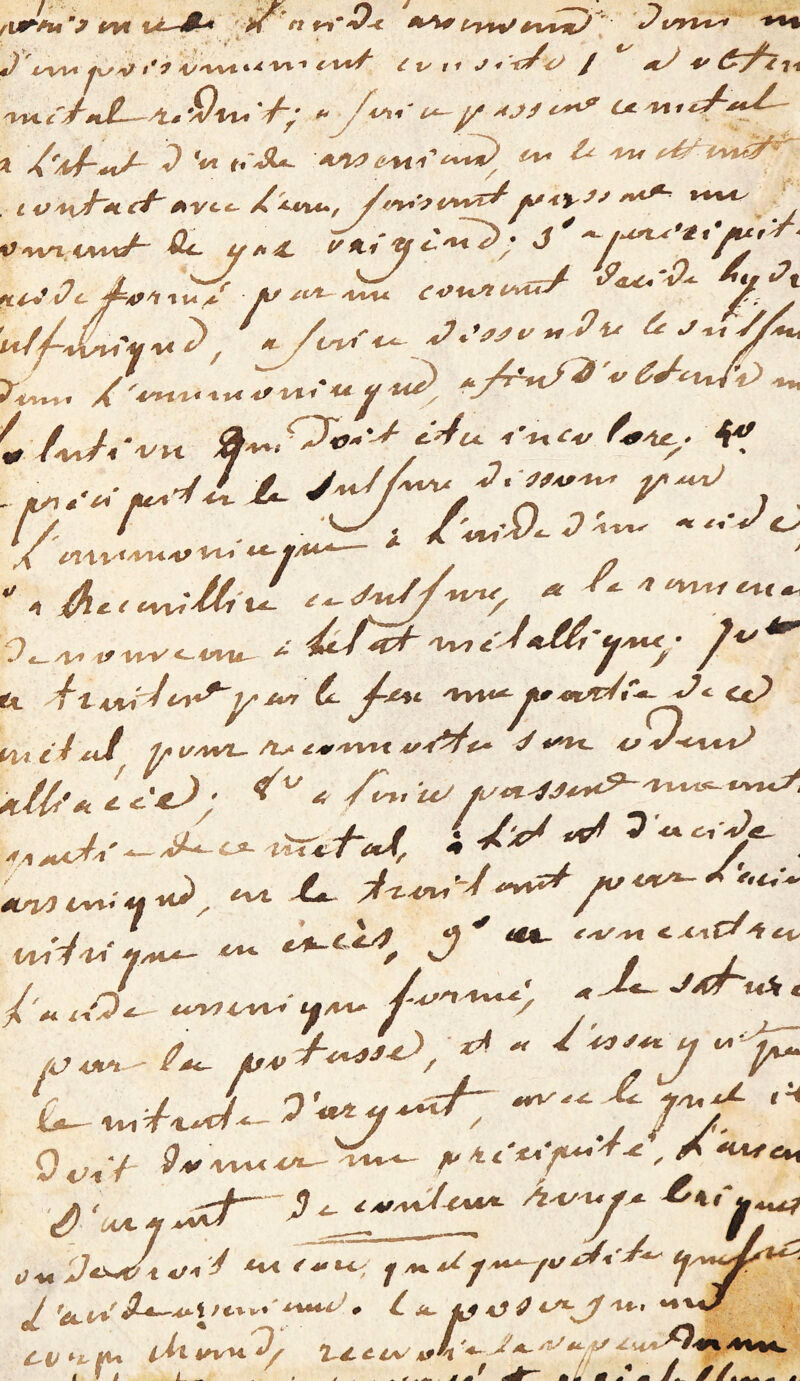 d'acide arsenieux dans un
d'empoisonnement consiste 1° a obten
metal réduit; a faire passer ce metal
a L'etat d'acide arsenieux, en le mettant
contact avec L'eau, faisant passer un
ourant de gaz oxigène; 3° a precipit
acide formé par un courant d'acide hydr
ulfurique, a faire dissoudre le sulfu
dans L'ammoniaque, afin D'obtenir un
solution Qui Doit être incolore;
precipiter le Sulfure dissous par
L'ammoniaque à L'aide d'un acide,
a Recueillir ce sulfure, a le ramener
De nouveau à L'etat métallique; 7°
a traiter par le feu une partie de ce
metal, pour reconnoitre son odeur
alliacée; 8° a faire passer une aut
partie de ce metal, à L'etat d'acide
arsenique, en le traitant par L'aci
nitrique en excès, 9° a concentrer
L'acide arsenique formé, a le sature
par la potasse, et a L'essayer pa
le nitrate d'argent, avec le quel il
Doit Donner un précipité, L'arsen
D'argent De couleur rouge briquet
on Devroit encore, quelque petite que fut
L'acide arsenieux. La poser sur un
corps chaud, recevoir la vapeur Dans un